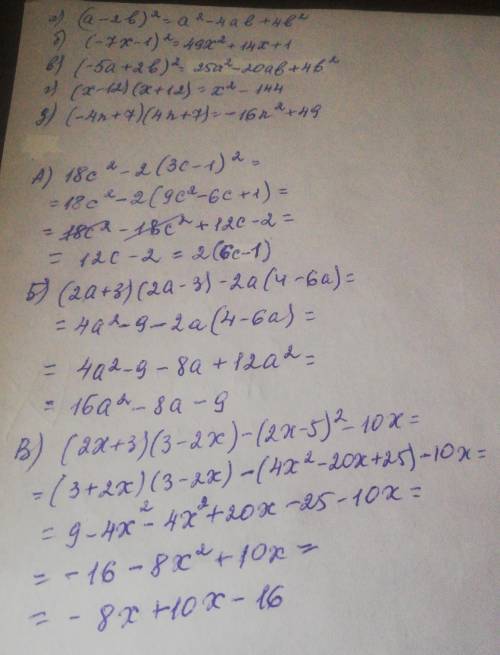 а) (a-2b)²=a²-4ab+4b²
б) (-7x-1)²=49x²+14x+1
в) (-5a+2b)²=25a²-20ab+4b²
г) (x-12)(x+12)=x²-144
д) (-4n+7)(4n+7)=-16n²+49
А) 18c²-2(3c-1)²=
=18c²-2(9c²-6c+1)=
=18c²-18c²+12c-2=
= 12c-2=2(6c-1)
Б) (2a+3)(2a-3)-2a(4-6a)=
=4a²-9-2a(4-6a)=
= 4a²-9-8a+12a²=
= 16a²-8a-9
В) (2x+3)(3-2x)-(2x-5)²-10x=
=(3+2x)(3-2x)-(4x²-20x+25)-10x=
= 9-4x²-4x²+20x-25-10x=
= -16-8x²+10x=
= -8x+10x-16